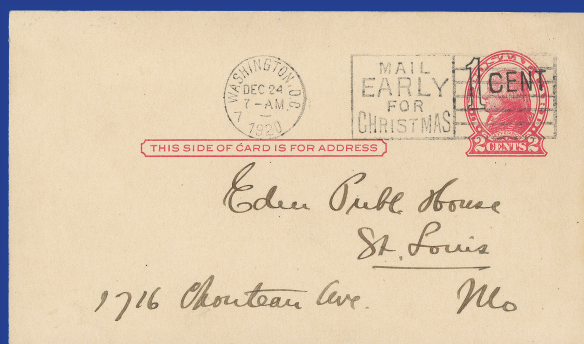 WASHINGTON, D.C.
DEC 24
7-AM
1920
MAIL
EARLY
FOR
CHRISTMAS
1 CENT
2 CENTS 2
THIS SIDE OF CARD IS FOR ADDRESS
Eden Publ. House
St. Louis
1716 Chouteau Ave. Mo